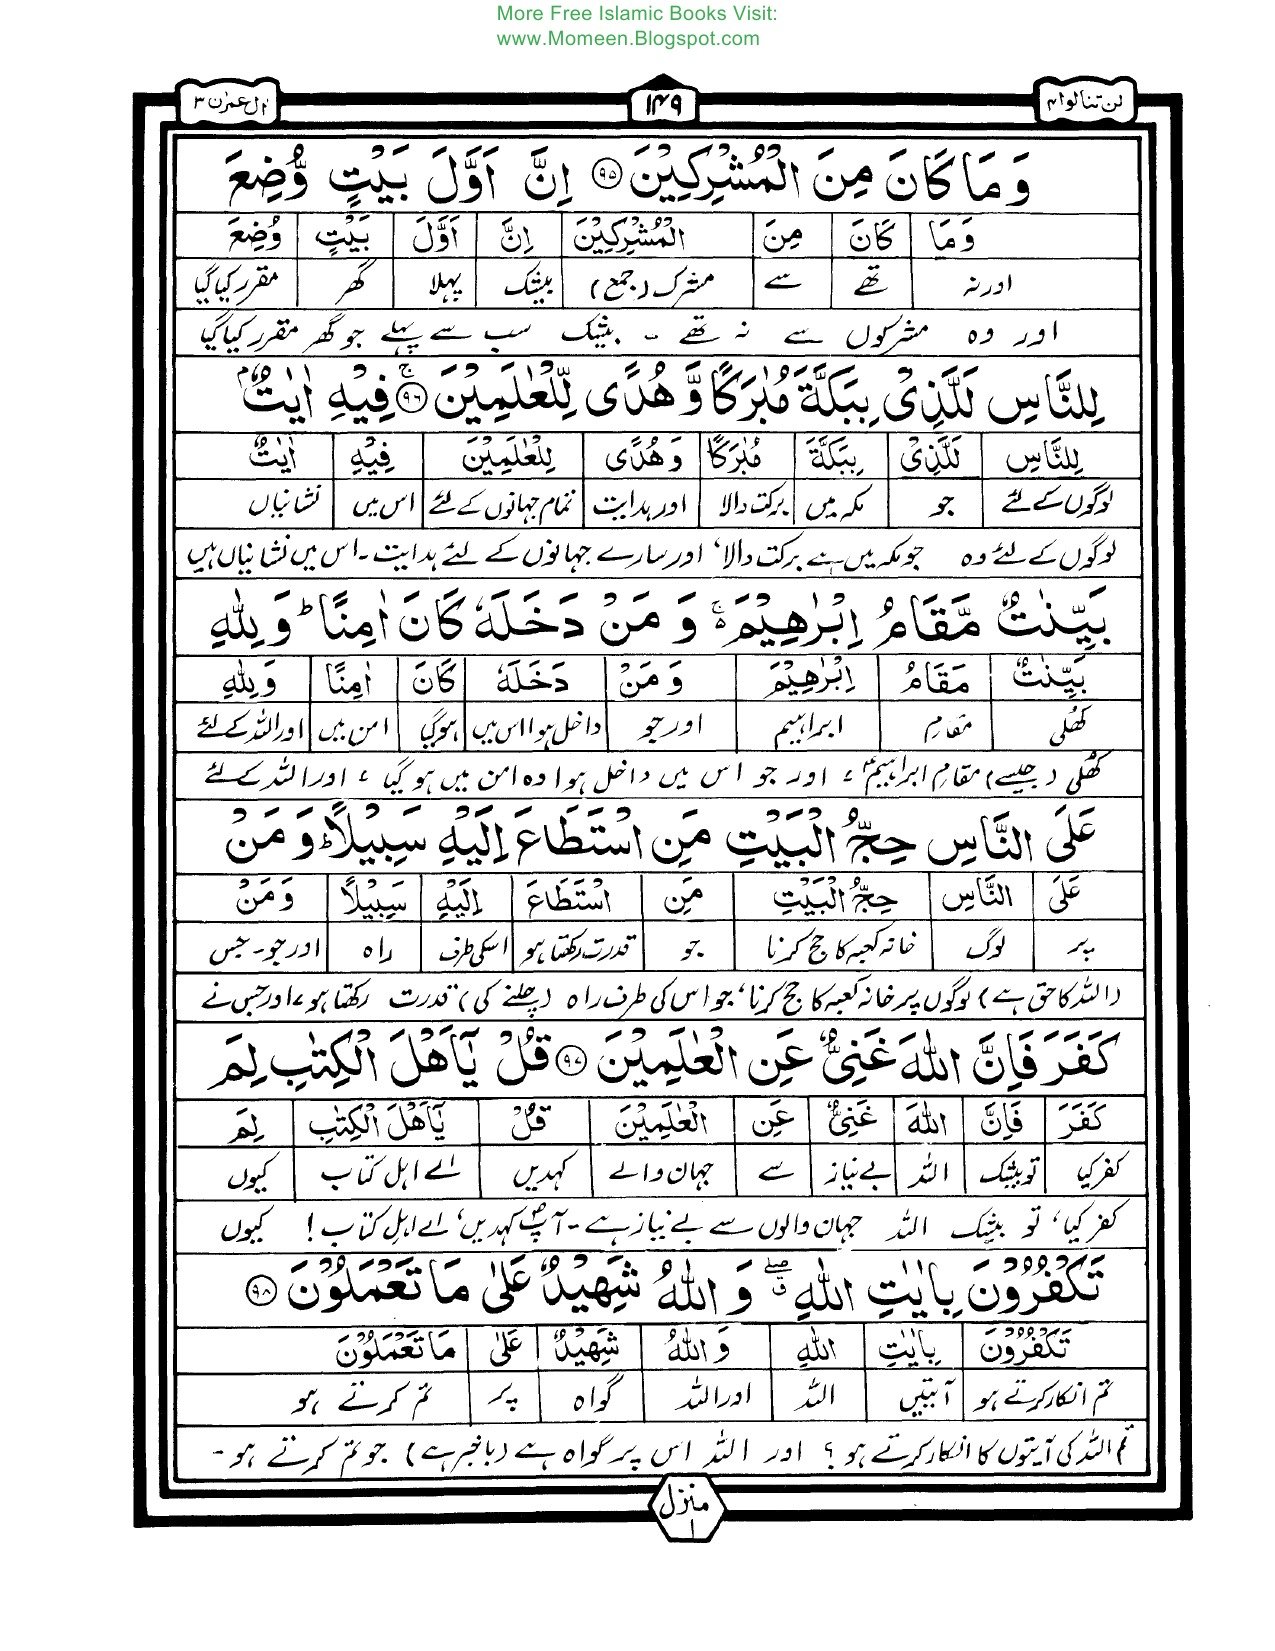 More Free Islamic Books Visit:
www.Momeen.Blogspot.com
لن تنالوا ۴ ۱۴۹ اٰل عمرٰن ۳
وَ مَا كَانَ مِنَ الْمُشْرِكِيْنَ ۹۵ اِنَّ اَوَّلَ بَيْتٍ وُّضِعَ
وَمَا كَانَ مِنَ الْمُشْرِكِيْنَ اِنَّ اَوَّلَ بَيْتٍ وُضِعَ
اور نہ تھے سے مشرک (جمع) بیشک پہلا گھر مقرر کیا گیا
اور وہ مشرکوں سے نہ تھے ۔ بیشک سب سے پہلے جو گھر مقرر کیا گیا
لِلنَّاسِ لَلَّذِیْ بِبَكَّةَ مُبٰرَكًا وَّ هُدًی لِّلْعٰلَمِيْنَ ۹۶ۚ فِيْهِ اٰيٰتٌۢ
لِلنَّاسِ لَلَّذِیْ بِبَكَّةَ مُبٰرَكًا وَ هُدًی لِلْعٰلَمِيْنَ فِيْهِ اٰيٰتٌ
لوگوں کے لئے جو مکہ میں برکت والا اور ہدایت تمام جہانوں کے لئے اس میں نشانیاں
لوگوں کے لئے وہ جو مکہ میں ہے برکت والا، اور سارے جہانوں کے لئے ہدایت ۔ اس میں نشانیاں ہیں
بَيِّنٰتٌ مَّقَامُ اِبْرٰهِيْمَ ۚ وَ مَنْ دَخَلَهٗ كَانَ اٰمِنًا ؕ وَ لِلّٰهِ
بَيِّنٰتٌ مَقَامُ اِبْرٰهِيْمَ وَ مَنْ دَخَلَهٗ كَانَ اٰمِنًا وَ لِلّٰهِ
کھلی مقام ابراہیم اور جو داخل ہوا اس میں ہوگیا امن میں اور اللہ کے لئے
کھلی (جیسے) مقامِ ابراہیمؑ، اور جو اس میں داخل ہوا وہ امن میں ہو گیا، اور اللہ کے لئے
عَلَی النَّاسِ حِجُّ الْبَيْتِ مَنِ اسْتَطَاعَ اِلَيْهِ سَبِيْلًا ؕ وَ مَنْ
عَلَی النَّاسِ حِجُّ الْبَيْتِ مَنِ اسْتَطَاعَ اِلَيْهِ سَبِيْلًا وَ مَنْ
پر لوگ خانہ کعبہ کا حج کرنا جو قدرت رکھتا ہو اسکی طرف راہ اور جو ۔ جس
(اللہ کا حق ہے) لوگوں پر خانہ کعبہ کا حج کرنا، جو اس کی طرف راہ (چلنے کی) قدرت رکھتا ہو، اور جس نے
كَفَرَ فَاِنَّ اللّٰهَ غَنِیٌّ عَنِ الْعٰلَمِيْنَ ۹۷ قُلْ يٰۤاَهْلَ الْكِتٰبِ لِمَ
كَفَرَ فَاِنَّ اللّٰهَ غَنِیٌّ عَنِ الْعٰلَمِيْنَ قُلْ يٰۤاَهْلَ الْكِتٰبِ لِمَ
کفر کیا تو بیشک اللہ بے نیاز سے جہان والے کہدیں اے اہل کتاب کیوں
کفر کیا، تو بیشک اللہ جہان والوں سے بے نیاز ہے ۔ آپؐ کہدیں، اے اہلِ کتاب! کیوں
تَكْفُرُوْنَ بِاٰيٰتِ اللّٰهِ ۖۗ وَ اللّٰهُ شَهِيْدٌ عَلٰی مَا تَعْمَلُوْنَ ۹۸
تَكْفُرُوْنَ بِاٰيٰتِ اللّٰهِ وَ اللّٰهُ شَهِيْدٌ عَلٰی مَا تَعْمَلُوْنَ
تم انکار کرتے ہو آیتیں اللہ اور اللہ گواہ پر تم کرتے ہو
تم اللہ کی آیتوں کا انکار کرتے ہو؟ اور اللہ اس پر گواہ ہے (باخبر ہے) جو تم کرتے ہو ۔
منزل ۱